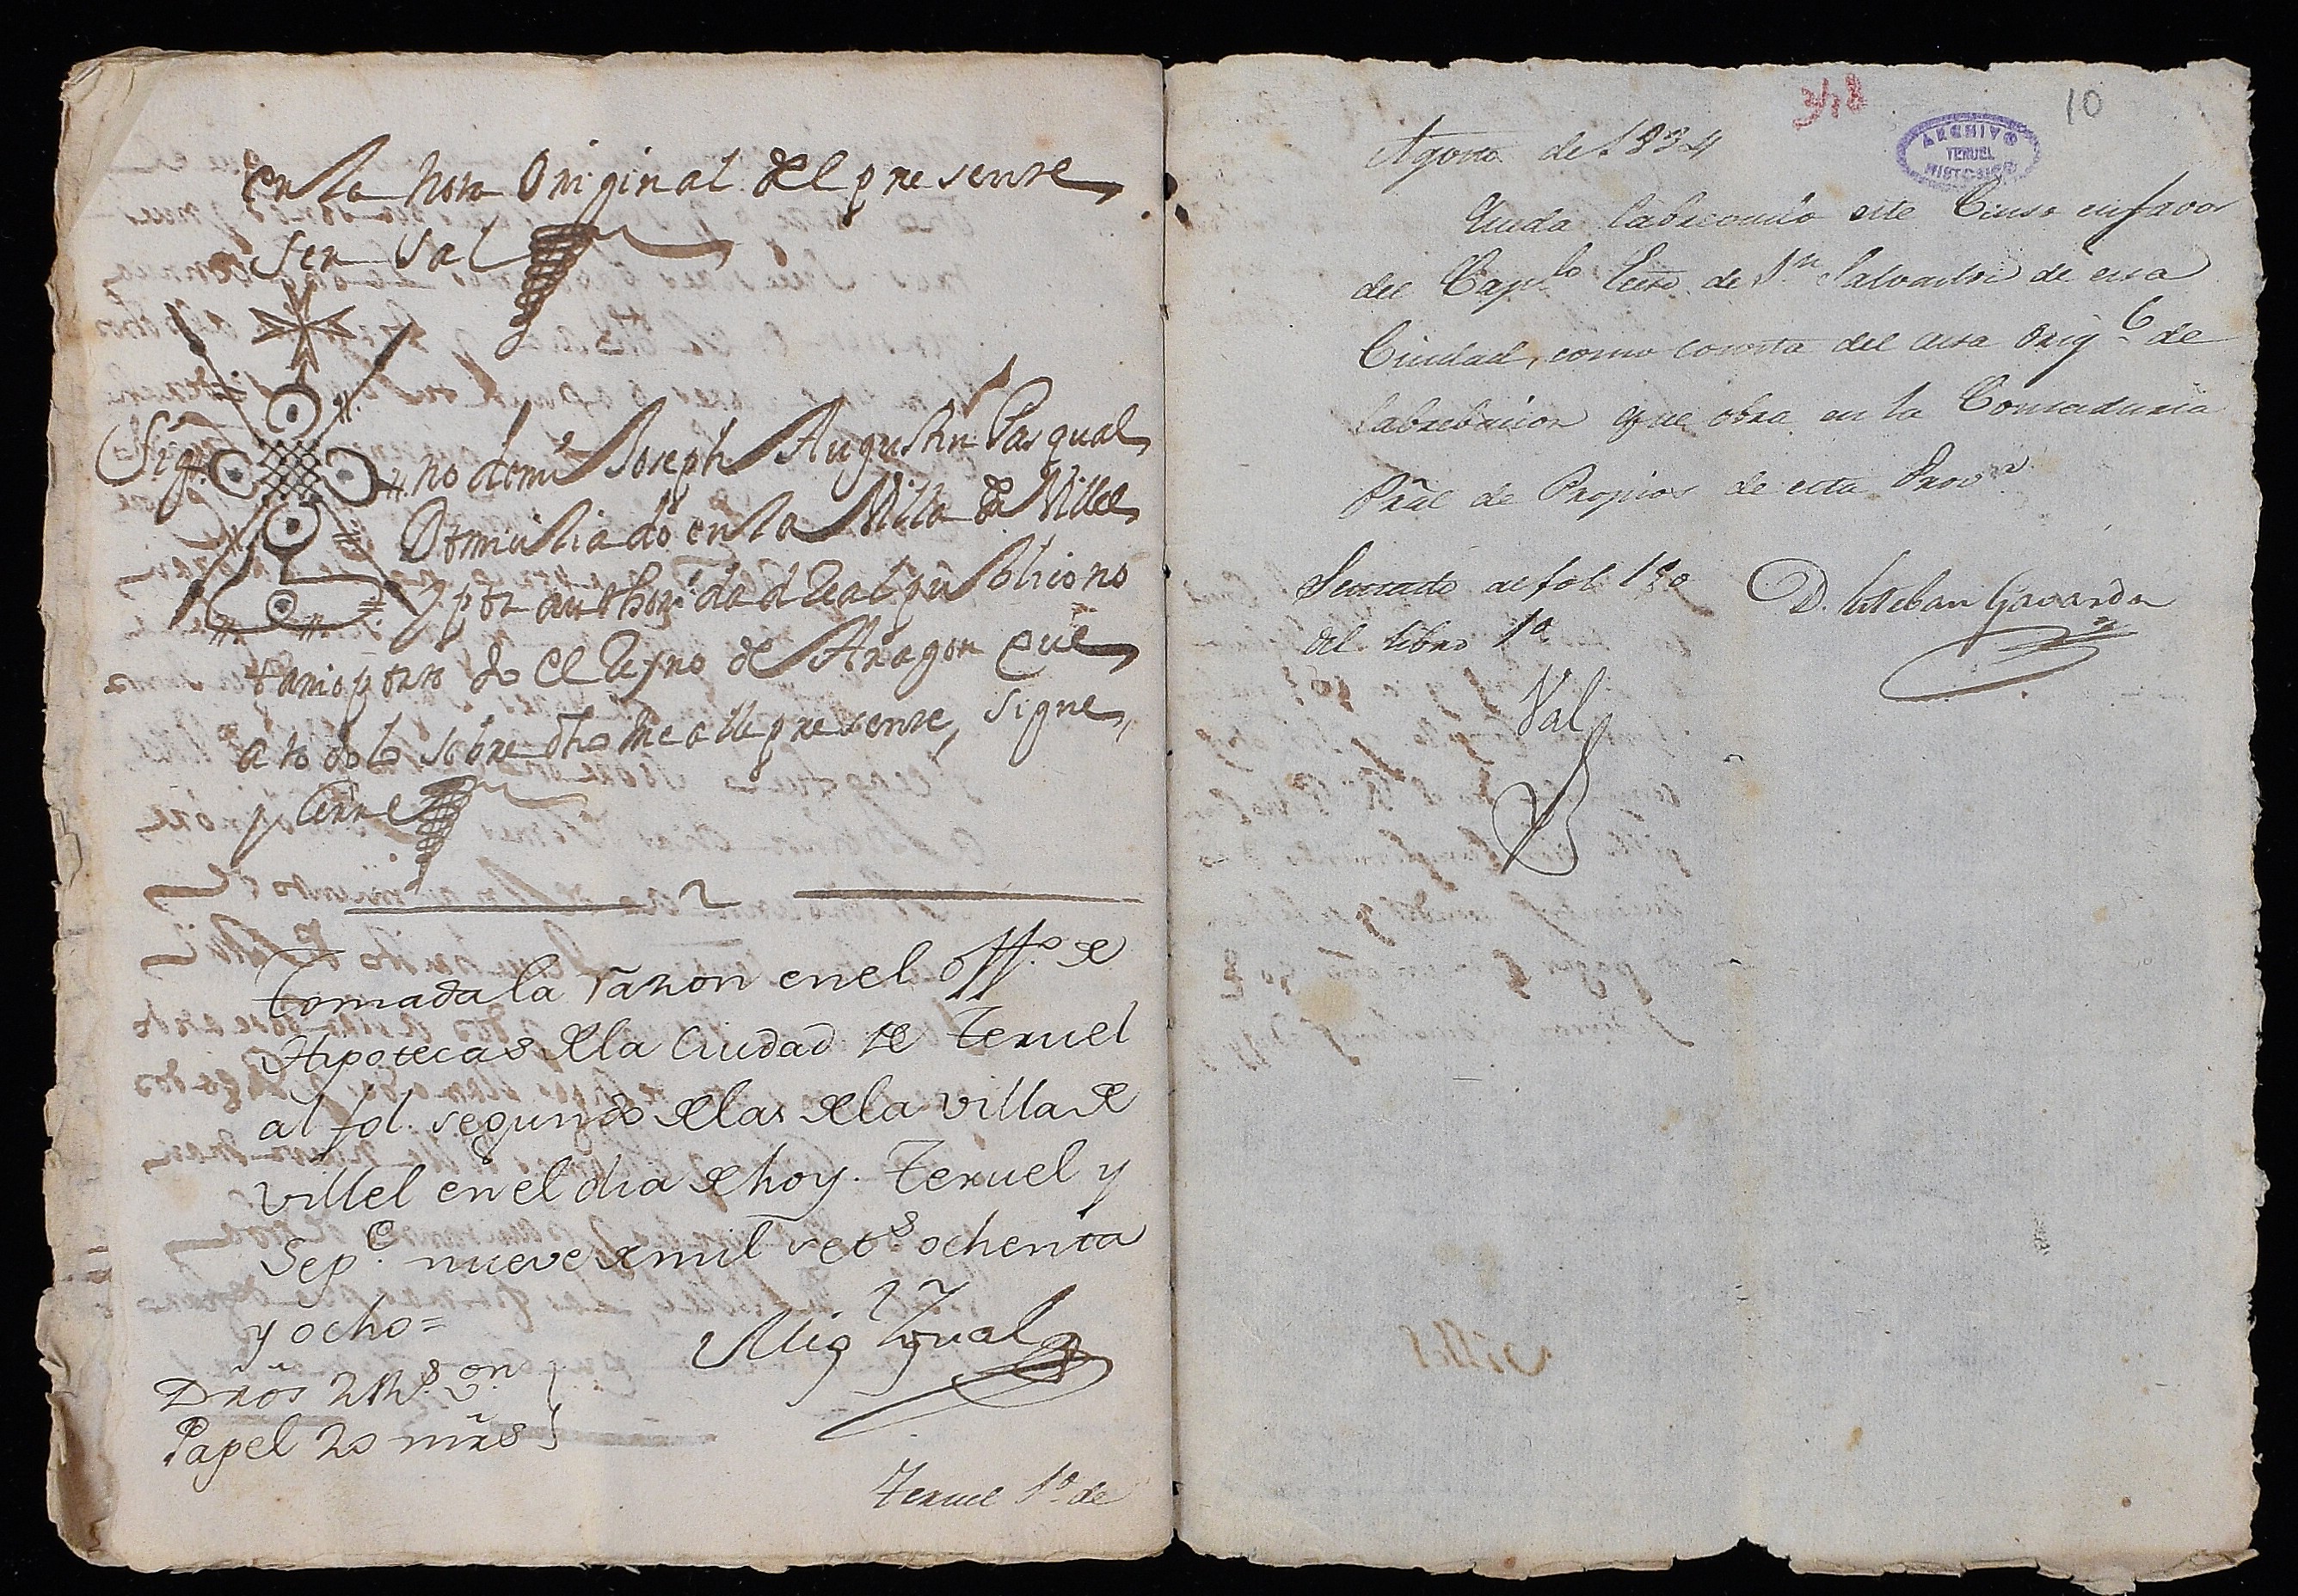 en la nota Original del presente
sen sal
Sig no de mi Joseph Augustin Pasqual
Domiciliado en la Villa de Villel
y por authoridad Real publico no
tario por todo el Reyno de Aragon que
a todo lo sobre dho me alle presente, signe,
y Cerre
Tomada la razon en el Offº. de
Hipotecas de la Ciudad de Teruel
al fol. segundo de las de la villa de
Villel en el dia de hoy. Teruel y
Sepe. nueve de mil setˢ ochenta
y ocho =
Mig
Drõs 2 Rˢ. vⁿ
Papel 20 mrs
Teruel 1º de
348
10
ARCHIVO
TERUEL
HISTORICO
Agosto de 1834
Queda cabrevado este Censo en favor
del Caplo Ecco. de Sn. Salvador de esta
Ciudad, como consta del acta Origl. de
Cabrebacion que obra en la Contaduria
Pral de Propios de esta Prova.
Sentado al fol 1
del libro 1º
D. Esteban Gavarda
Val